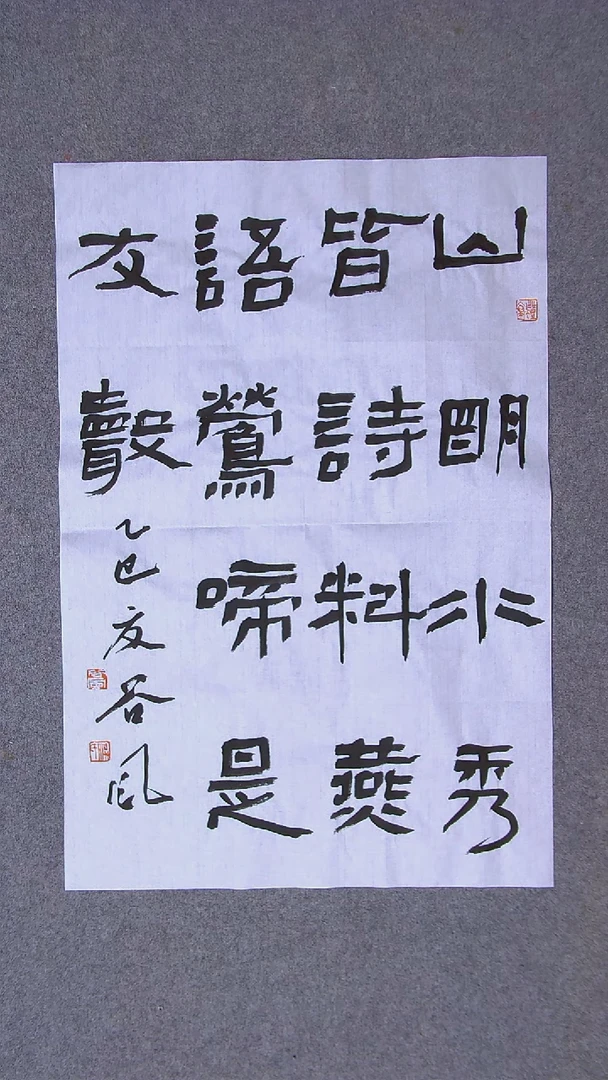 山明水秀
皆詩料燕
語鶯啼是
友聲
乙巳夏谷风